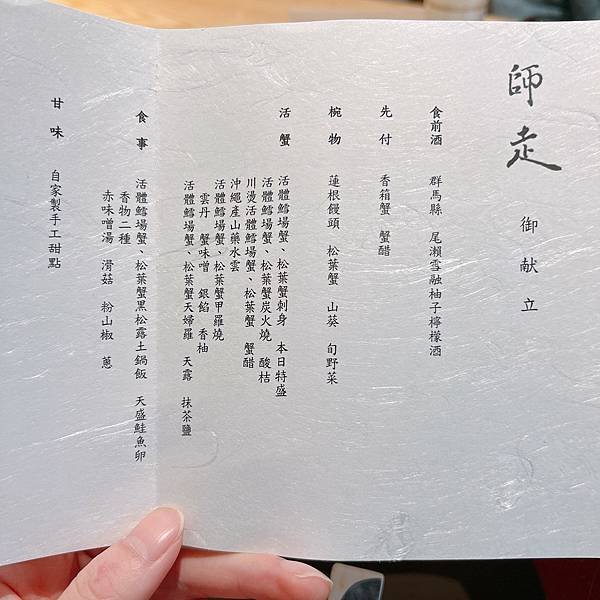 師走 御献立
食前酒 群馬縣 尾瀨雪融柚子檸檬酒
先付 香箱蟹 蟹醋
椀物 蓮根饅頭 松葉蟹 山葵 旬野菜
活蟹 活體鱈場蟹、松葉蟹刺身 本日特盛
活體鱈場蟹、松葉蟹炭火燒 酸桔
川燙活體鱈場蟹、、松葉蟹 蟹醋
沖繩產山藥水雲
活體鱈場蟹、松葉蟹甲羅燒
雲丹 蟹味噌 銀餡 香柚
活體鱈場蟹、松葉蟹天婦羅 天露 抹茶鹽
食事 活體鱈場蟹、松葉蟹黑松露土鍋飯 天盛鮭魚卵
香物二種
赤味噌湯 滑菇 粉山椒 蔥
甘味 自家製手工甜點